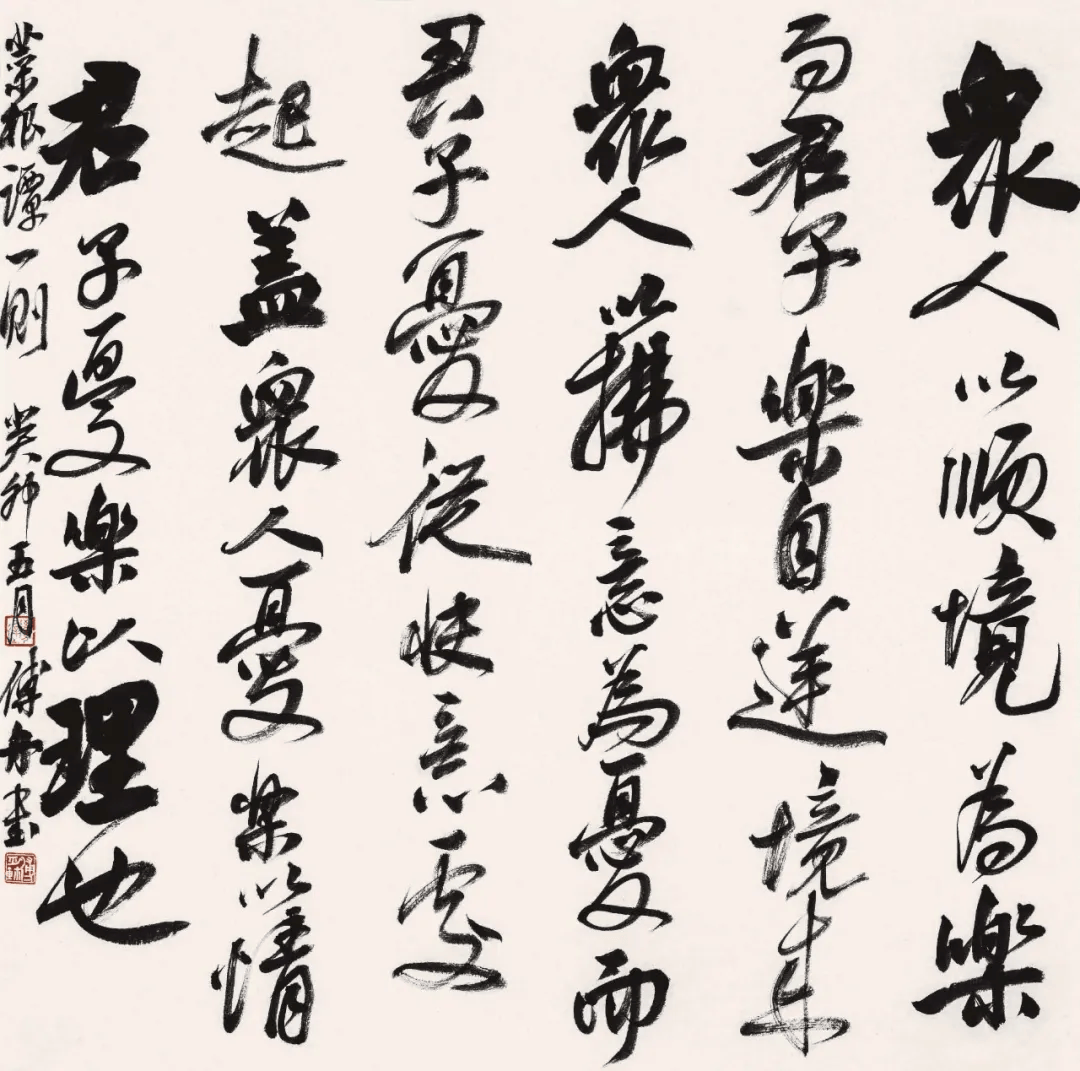 眾人以順境為樂
而君子樂自逆境來
眾人以拂意為憂而
君子憂從快意處
起蓋眾人憂樂以情
君子憂樂以理也
菜根譚一則 癸卯五月 傅舟書